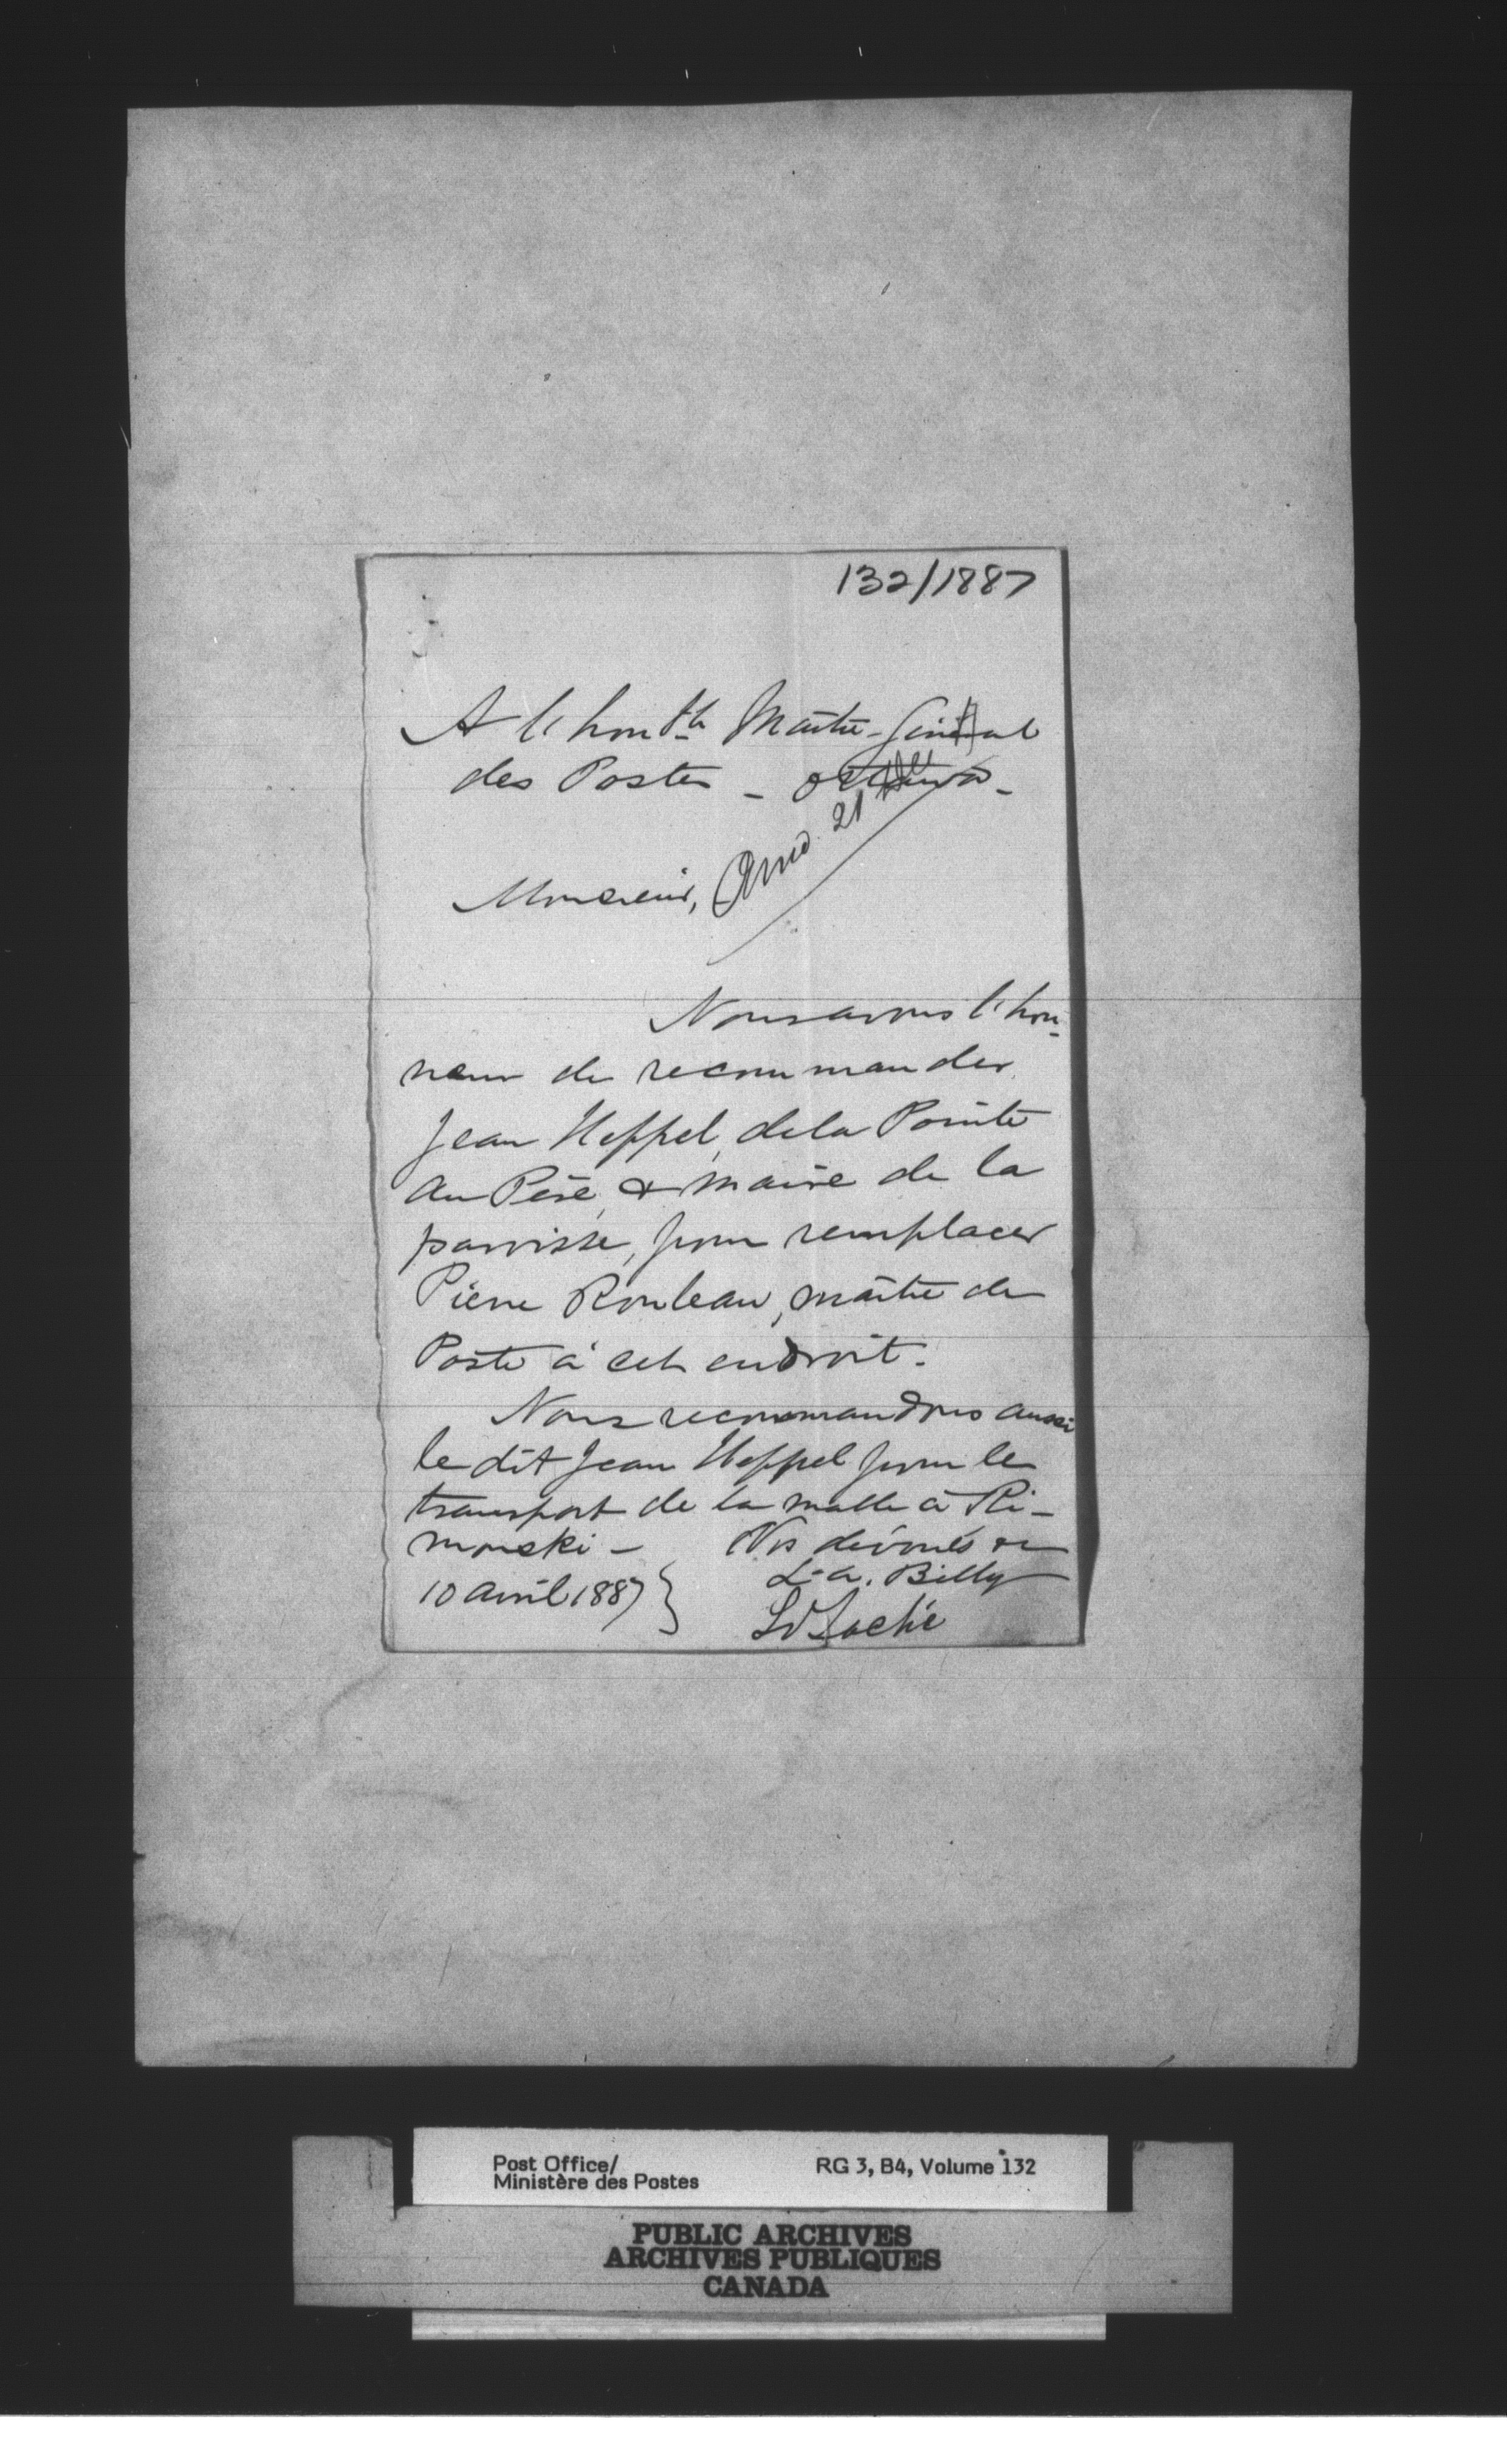 132/1887
A l'honble Maître-Général
des Postes - Ottawa -
Ansd 21
Monsieur,
Nous avons l'hon-
neur de recommander
Jean Heppel, de la Pointe
au Père, & maire de la
paroisse, pour remplacer
Pierre Rouleau, maître de
Poste à cet endroit.
Nous recommandons aussi
le dit Jean Heppel pour le
transport de la malle à Ri-
mouski - Vos dévoués
10 avril 1887 } L. A. Billy
Taché
Post Office/
Ministère des Postes
RG 3, B4, Volume 132
PUBLIC ARCHIVES
ARCHIVES PUBLIQUES
CANADA